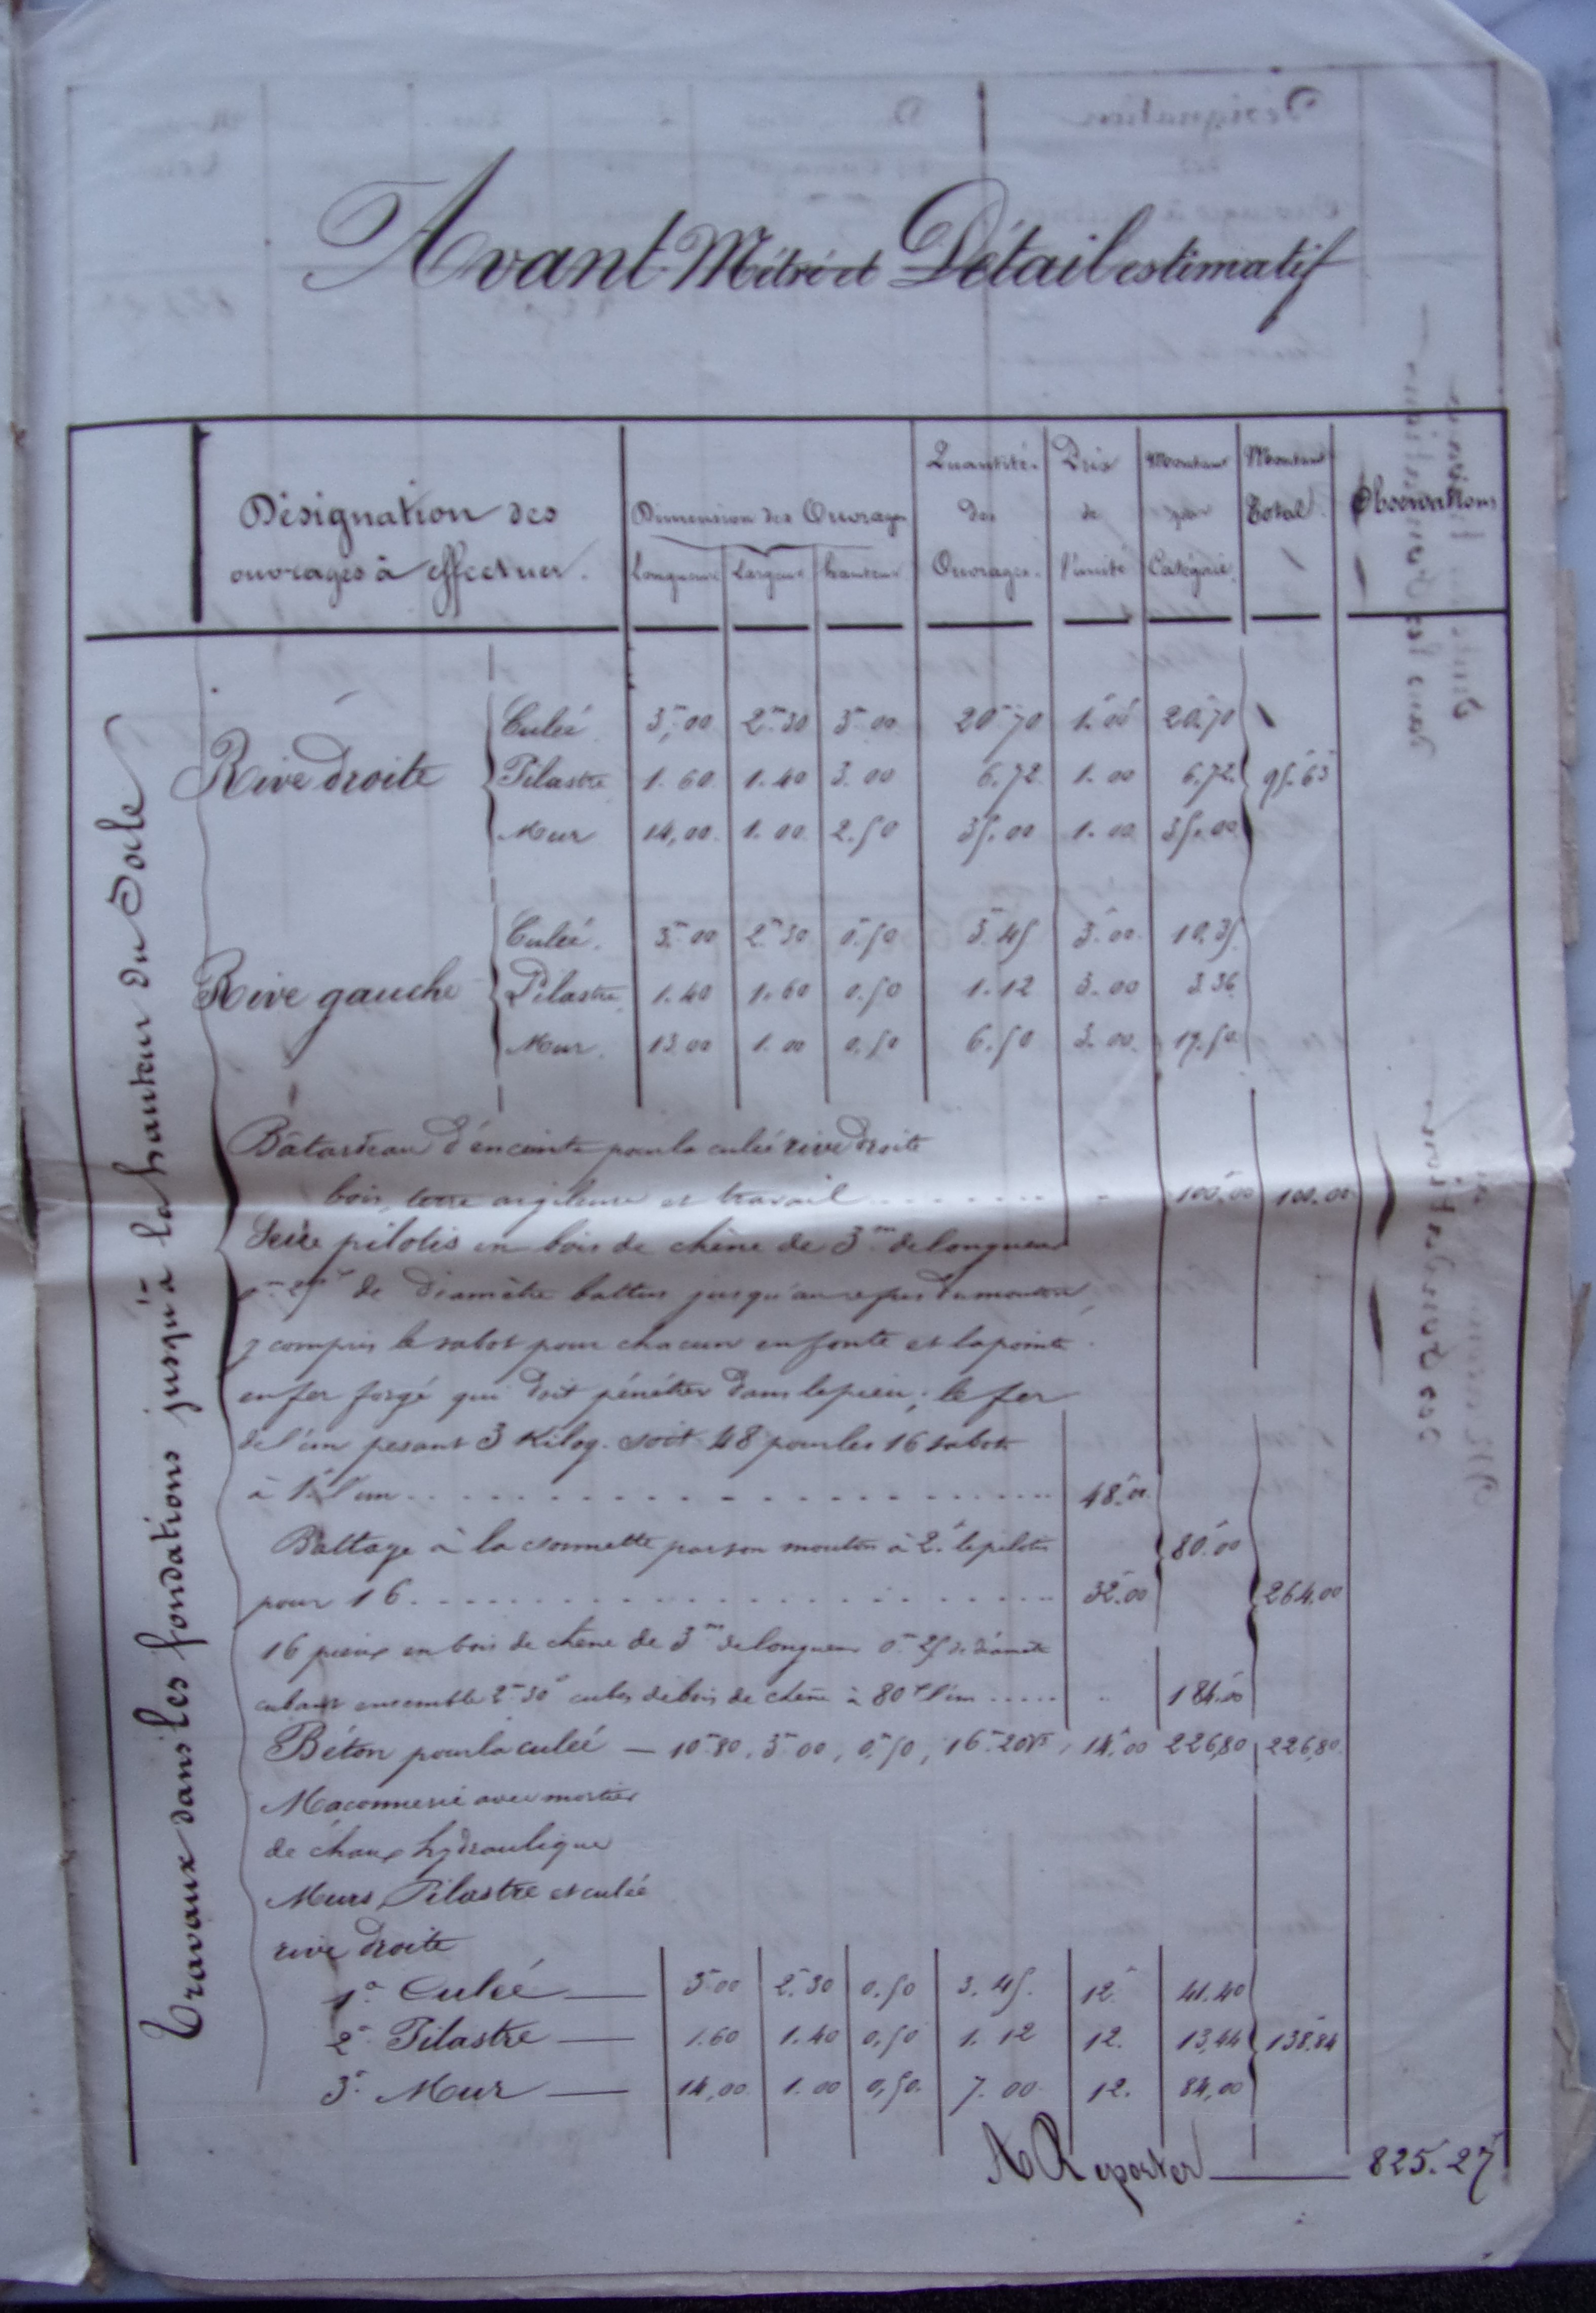 Avant Métré et Détail estimatif
Désignation des ouvrages à effectuer.
Dimension des Ouvrages
Longueur Largeur hauteur
Quantités des Ouvrages.
Prix de l'unité
Montant par Catégorie.
Montant Total.
Observations
Travaux dans les fondations jusqu'à la hauteur du socle
Rive droite
Culée 3m,00 2m30 3m00 20m70 1.f00 20.70
Pilastre 1.60 1.40 3.00 6.72 1.00 6.72
Mur 14,00. 1.00. 2.50 35.00 1.00 35.00
95.63
Rive gauche
Culée. 3m00 2m30 0m50 3m45 3f00 10.35
Pilastre 1.40 1.60 0.50 1.12 3.00 3.36
Mur. 13.00 1.00 0.50 6.50 3.00 19.50
Batardeau d'enceinte pour la culée rive droite
bois, terre argileuse et travail 100.00 100.00
Seize pilotis en bois de chêne de 3m de longueur
0m25 de diamètre battus jusqu'au refus du mouton
y compris le sabot pour chacun en fonte et la pointe
en fer forgé qui doit pénétrer dans le pieu; le fer
de l'un pesant 3 Kilog. soit 48 pour les 16 sabots
à 1f l'un 48f00
Battage à la sonnette par son mouton à 2f le pilotis
80.00
pour 16. 32.00 264.00
16 pieux en bois de chêne de 3m de longueur 0m25 de diamètre
cubant ensemble 2m30 cubes de bois de chêne à 80f l'un 184.00
Béton pour la culée — 10m80, 3m00, 0m50, 16m20 14f00 226,80 226,80
Maconnerie avec mortier
de chaux hydraulique
Murs, Pilastre et culée
rive droite
1º Culée — 3m00 2m30 0.50 3.45. 12f 41.40
2º Pilastre — 1.60 1.40 0,50 1.12 12. 13,44 138.84
3º Mur — 14,00 1.00 0,50. 7.00 12. 84,00
A Reporter — 825.27